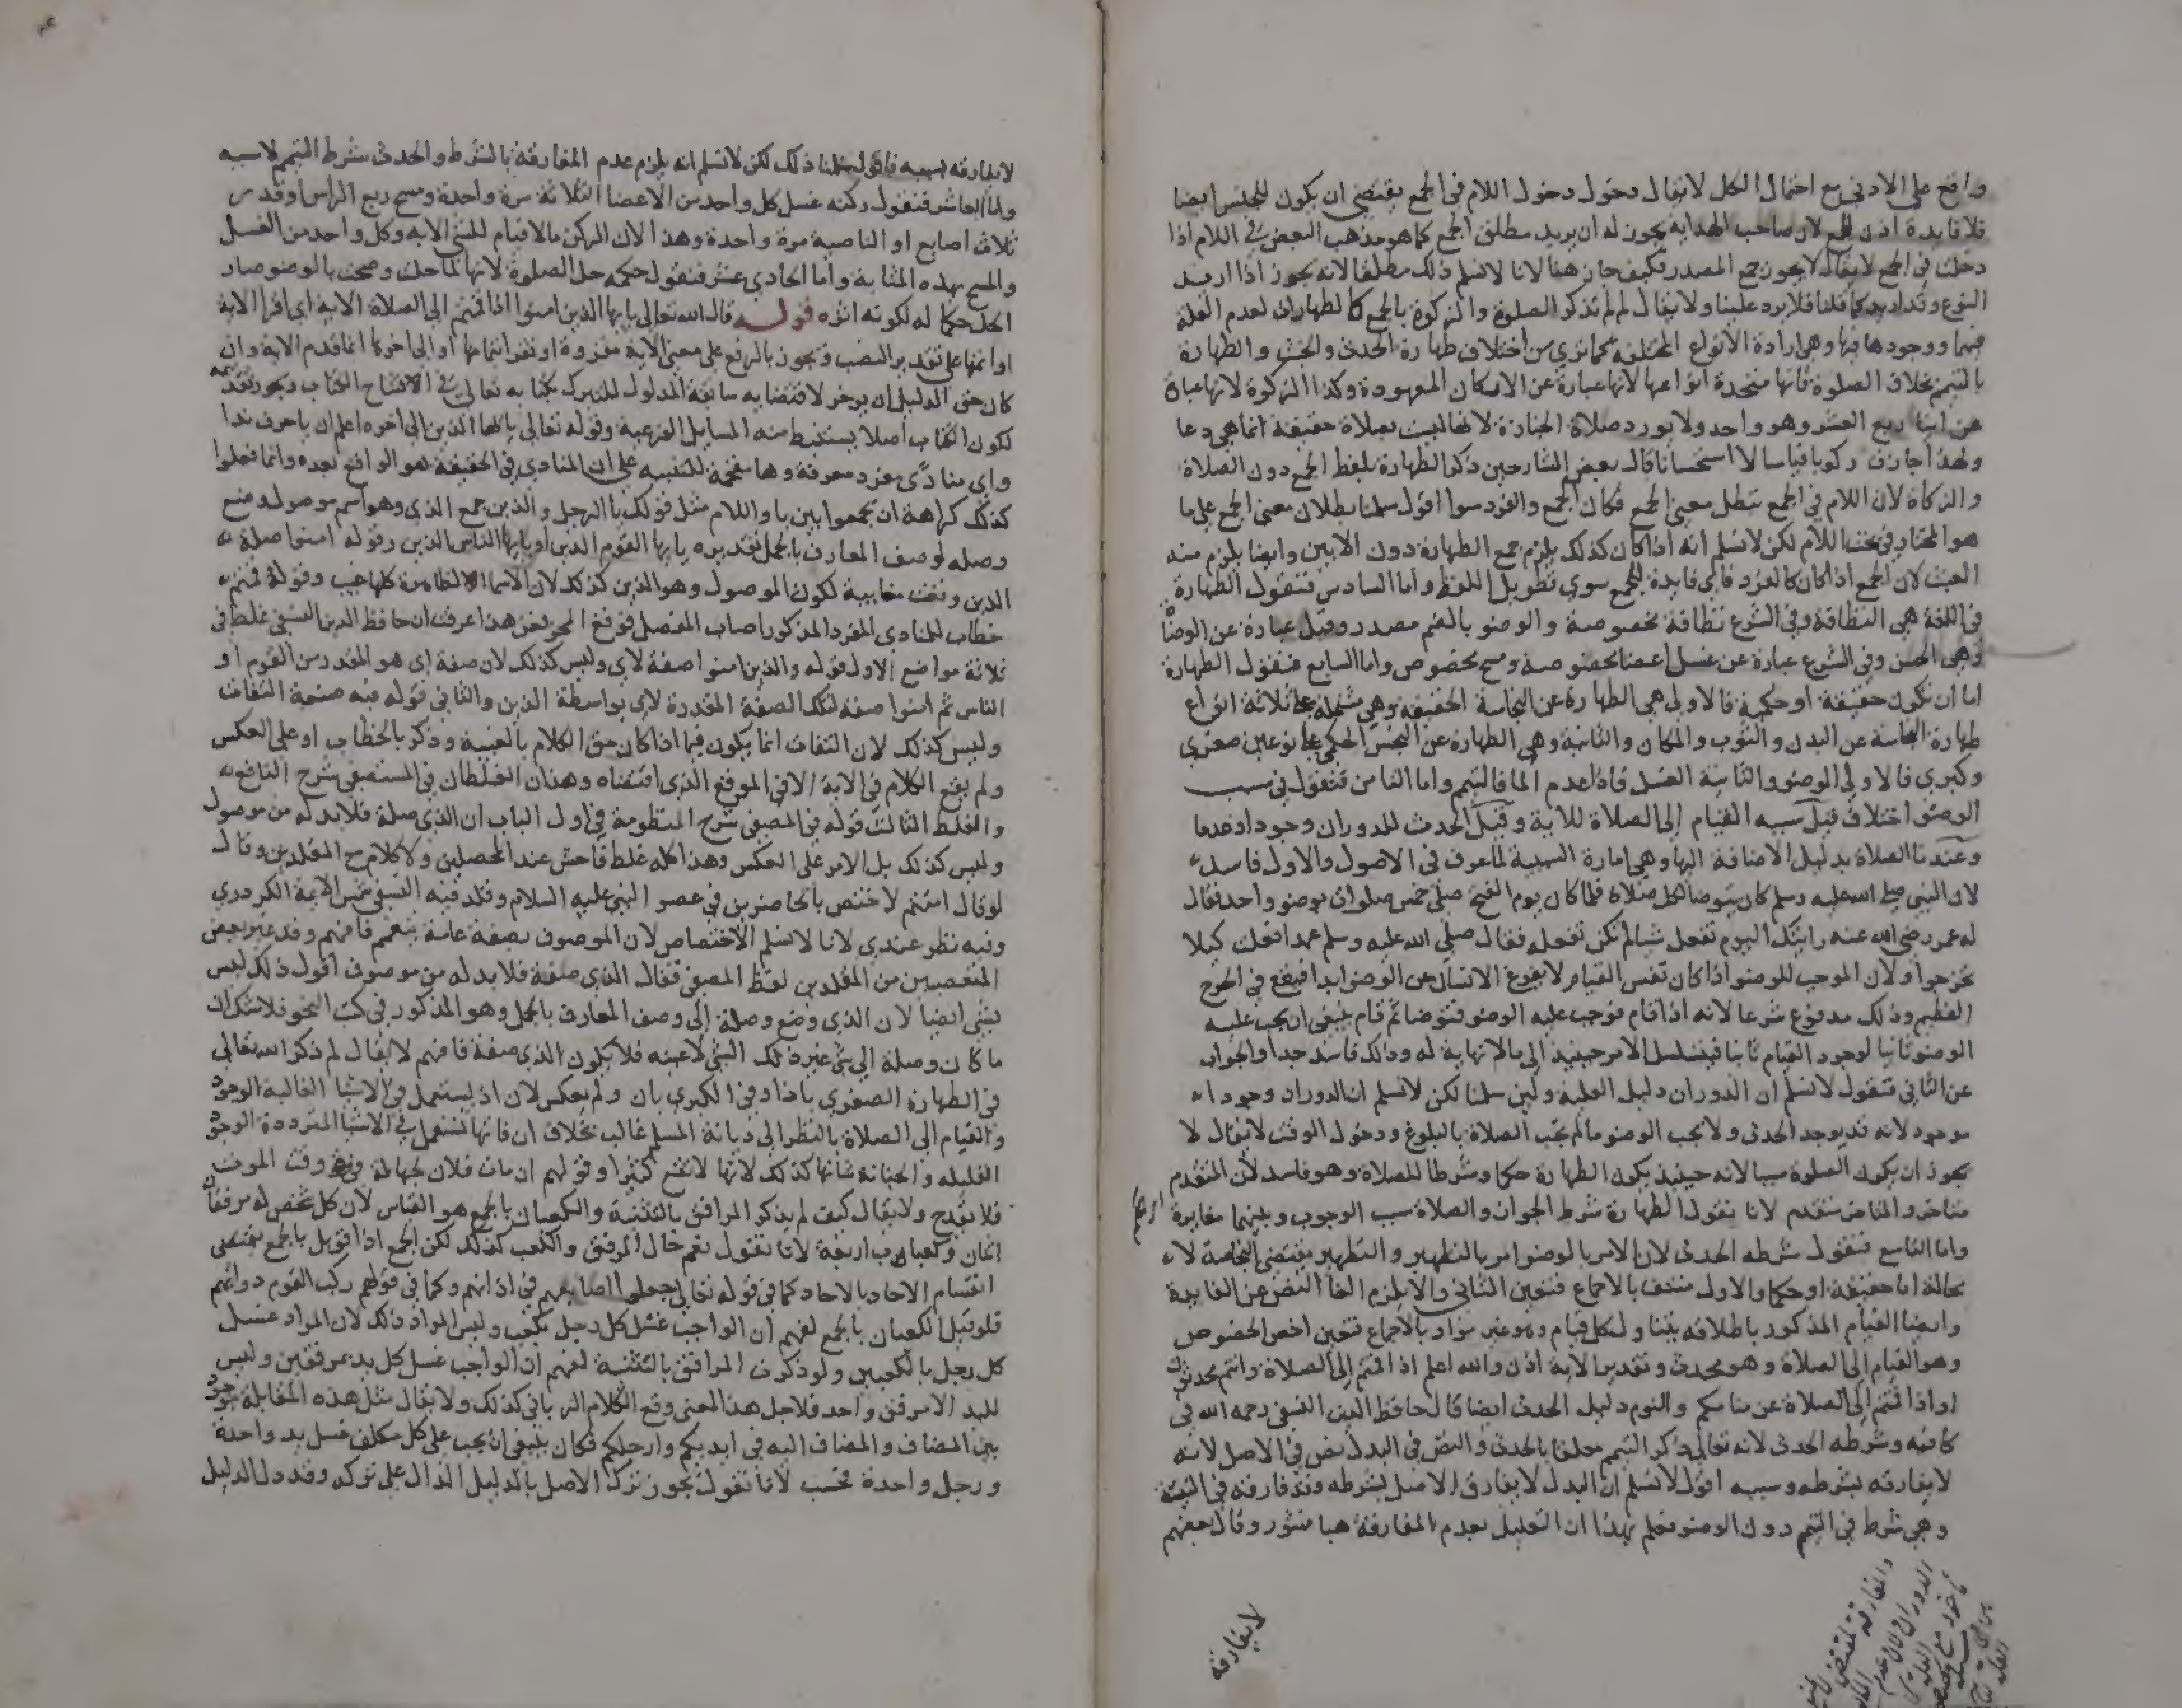 واقع على الادنى مع احتمال الكل لا يقال دخول دخول اللام فى الجمع يقتضى ان يكون للجنس ايضا
فلا فايدة اذن للجمع لان صاحب الهداية يجوز له ان يريد مطلق الجمع كما هو مذهب البعض فى اللام اذا
دخلت فى الجمع لا يقال لا يجوز جمع المصدر فكيف جاز هنا لانا لا نسلم ذلك مطلقا لانه يجوز اذا اريد
النوع وقد اريد كما قلنا فلا يرد علينا ولا يقال لم لم تذكر الصلوة والزكوة بالجمع كالطهارات لعدم العلة
فيهما ووجودها فيها وهى ارادة الأنواع المختلفة كما ترى من اختلاف طهارة الحدث والخبث والطهارة
بالتيمم بخلاف الصلوة فانها متحدة انواعها لانها عبارة عن الاركان المعهودة وكذا الزكوة لانها عبارة
عن ايتا ربع العشر وهو واحد ولا يورد صلاة الجنازة لانها ليست بصلاة حقيقة انما هى دعا
ولهذا جازت ركوبا قياسا لا استحسانا قال بعض الشارحين ذكر الطهارة بلفظ الجمع دون الصلاة
والزكاة لان اللام فى الجمع تبطل معنى الجمع فكان الجمع والفرد سوا اقول سلمنا بطلان معنى الجمع على ما
هو المختار فى بحث اللام لكن لا نسلم انه اذا كان كذلك يلزم جمع الطهارة دون الاخيرين وايضا يلزم منه
العبث لان الجمع اذا كان كالفرد فاى فايدة للجمع سوى تطويل اللفظ واما السادس فنقول الطهارة
فى اللغة هى النظافة وفى الشرع نظافة مخصوصة والوضو بالضم مصدر وقيل عبارة عن الوضاة
وهى الحسن وفى الشرع عبارة عن غسل اعضا مخصوصة ومسح مخصوص واما السابع فنقول الطهارة
اما ان تكون حقيقة او حكمية فالاولى هى الطهارة عن النجاسة الحقيقية وهى مشتملة على ثلاثة انواع
طهارة النجاسة عن البدن والثوب والمكان والثانية وهى الطهارة عن النجس الحكمى على نوعين صغرى
وكبرى فالاولى الوضو والثانية الغسل فاذا عدم الما فالتيمم واما الثامن فنقول فى سبب
الوضو اختلاف قيل سببه القيام إلى الصلاة للاية وقيل الحدث للدوران وجودا وعدما
وعندنا الصلاة بدليل الاضافة اليها وهى امارة السببية لما عرف فى الاصول والاول فاسد
لان النبى صلى الله عليه وسلم كان يتوضا لكل صلاة فلما كان يوم الفتح صلى خمس صلوات بوضو واحد فقال
له عمر رضى الله عنه رايتك اليوم تفعل شيا لم تكن تفعله فقال صلى الله عليه وسلم عمدا فعلت كيلا
تحرجوا ولان الموجب للوضو اذا كان نفس القيام لا يفرغ الانسان من الوضو ابدا فيقع فى الحرج
العظيم وذلك مدفوع شرعا لانه اذا قام فوجب عليه الوضو فتوضا ثم قام ينبغى ان يجب عليه
الوضو ثانيا لوجود القيام ثانيا فيتسلسل الامر حينيذ الى ما لا نهاية له وذلك فاسد جدا والجواب
عن الثانى فنقول لا نسلم ان الدوران دليل العلية ولين سلمنا لكن لا نسلم ان الدوران وجودا
موجود لانه قد يوجد الحدث ولا يجب الوضو ما لم تجب الصلاة بالبلوغ ودخول الوقت لا يقال لا
يجوز ان يكون الصلوة سببا لانه حينيذ يكون الطهارة حكما وشرطا للصلاة وهو فاسد لان المتقدم
متاخر والمتاخر متقدم لانا نقول الطهارة شرط الجواز والصلاة سبب الوجوب وبينهما مغايرة
واما التاسع فنقول شرطه الحدث لان الامر بالوضو امر بالتطهير والتطهير يقتضى النجاسة لا
محالة اما حقيقة او حكما والاول منتف بالاجماع فتعين الثانى والا يلزم الغا النص عن الفايدة
وايضا القيام المذكور باطلاقه يتناول كل قيام وهو غير مراد بالاجماع فتعين اخص الخصوص
وهو القيام إلى الصلاة وهو محدث وتقدير الاية اذن والله اعلم اذا قمتم إلى الصلاة وانتم محدثون
او اذا قمتم إلى الصلاة عن منامكم والنوم دليل الحدث ايضا قال حافظ الدين النسفى رحمه الله فى
كافيه وشرطه الحدث لانه تعالى ذكر التيمم معلقا بالحدث والنص فى البدل نص فى الاصل لانه
لا يفارقه بشرطه وسببه اقول لا نسلم ان البدل لا يفارق الاصل بشرطه وقد فارقه فى النية
وهى شرط فى التيمم دون الوضو فعلم بهذا ان التعليل بعدم المفارقة هبا منثور وقال بعضهم
لا يفارقه
لا يفارقه بسببه فاقول سلمنا ذلك لكن لا نسلم انه يلزم عدم المفارقة بالشرط والحدث شرط التيمم لا سببه
واما العاشر فنقول ركنه غسل كل واحد من الاعضا الثلاثة مرة واحدة ومسح ربع الراس او قدر من
ثلاث اصابع او الناصية مرة واحدة وهذا لان الركن ما لا قيام للشى الا به وكل واحد من الغسل
والمسح بهذه المثابة واما الحادى عشر فنقول حكمه حل الصلوة لانها لما حلت وصحت بالوضو صار
الحل حكما له لكونه اثره قوله قال الله تعالى يا ايها الذين امنوا اذا قمتم الى الصلاة الاية اى اقرا الاية
او اتمها على تقدير النصب ويجوز بالرفع على معنى الاية مقروة او تقرا بتمامها او الى اخرها انما قدم الاية وان
كان حق الدليل ان يوخر لاقتضايه سابقة المدلول للتبرك بكتابه تعالى فى الافتتاح الكتاب ويجوز تقديمه
لكون الكتاب أصلا يستنبط منه المسايل الفرعية وقوله تعالى يا ايها الذين الى اخره اعلم ان يا حرف ندا
واى منادى مفرد معرفة وها مقحمة للتنبيه على ان المنادى فى الحقيقة هو الواقع بعده وانما فعلوا
كذلك كراهة ان يجمعوا بين يا واللام مثل قولك يا الرجل والذين جمع الذى وهو اسم موصول وضع
وصله لوصف المعارف بالجمل تقديره يا ايها القوم الذين او يا ايها الناس الذين وقوله امنوا صلة
الذين وقعت مغايبة لكون الموصول وهو الذين كذلك لان الاسما الظاهرة كلها غيب وقوله قمتم
خطاب للمنادى المفرد المذكور اصاب المفصل فوقع المحز نعن هذا عرفت ان حافظ الدين النسفى غلط فى
ثلاثة مواضع الاول قوله والذين امنوا صفة لاى وليس كذلك لان صفة اى هو المقدر من القوم او
الناس ثم امنوا صفة لتلك الصفة المقدرة لاى بواسطة الذين والثانى قوله فيه صنعة التفات
وليس كذلك لان التفات انما يكون فيما اذا كان حق الكلام بالغيبة وذكر بالخطاب او على العكس
ولم يقع الكلام فى الاية الا فى الموقع الذى اقتضاه وهذان الغلطان فى المستصفى شرح النافع
والغلط الثالث قوله فى المصفى شرح المنظومة فى اول الباب ان الذى صلة فلا بد له من موصول
وليس كذلك بل الامر على العكس وهذا كله غلط فاحش عند المحصلين ولا كلام مع المقلدين وقال
لو قال امنتم لاختص بالحاضرين فى عصر النبى عليه السلام وقلد فيه النسفى شمس الايمة الكردرى
وفيه نظر عندى لانا لا نسلم الاختصاص لان الموصوف بصفة عامة يتعمم فافهم وقد غير بعض
المتعصبين من المقلدين لفظ المصفى فقال الذى صفة فلا بد له من موصوف اقول ذلك ليس
بشى ايضا لان الذى وضع وصلة إلى وصف المعارف بالجمل وهو المذكور فى كتب النحو فلا شك ان
ما كان وصلة الى شى غير ذلك الشى لا عينه فلا يكون الذى صفة فافهم لا يقال لم ذكر الله تعالى
فى الطهارة الصغرى باذا وفى الكبرى بان ولم يعكس لان اذ يستعمل فى الاشيا الغالبة الوجود
والقيام إلى الصلاة بالنظر الى ديانة المسلم غالب بخلاف ان فانها تستعمل فى الاشيا المترددة الوجود
القليله والجنابة فانها كذلك لانها لا تقع كثيرا وقولهم ان مات فلان لجهالة وقت الموت
فلا يقدح ولا يقال كيف لم يذكر المرافق بالتثنية والكعبان بالجمع هو القياس لان كل شخص له مرفقان
اثنان وكعبا اربعة لانا نقول نعم حال المرفق والكعب كذلك لكن الجمع اذا قوبل بالجمع يقتضى
انقسام الاحاد بالاحاد كما فى قوله تعالى جعلوا اصابعهم فى اذانهم وكما فى قولهم ركب القوم دوابهم
فلو قيل الكعبان بالجمع لفهم ان الواجب غسل كل رجل بكعب وليس المراد ذلك لان المراد غسل
كل رجل بالكعبين ولو ذكرت المرافق بالتثنية لفهم ان الواجب غسل كل يد بمرفقين وليس
لليد الا مرفق واحد فلاجل هذا المعنى وقع الكلام الربانى كذلك ولا يقال مثل هذه المقابلة موجود
بين المضاف والمضاف اليه فى ايديكم وارجلكم فكان ينبغى ان يجب على كل مكلف غسل يد واحدة
ورجل واحدة فحسب لانا نقول يجوز ترك الاصل بالدليل الدال على تركه وقد دل الدليل